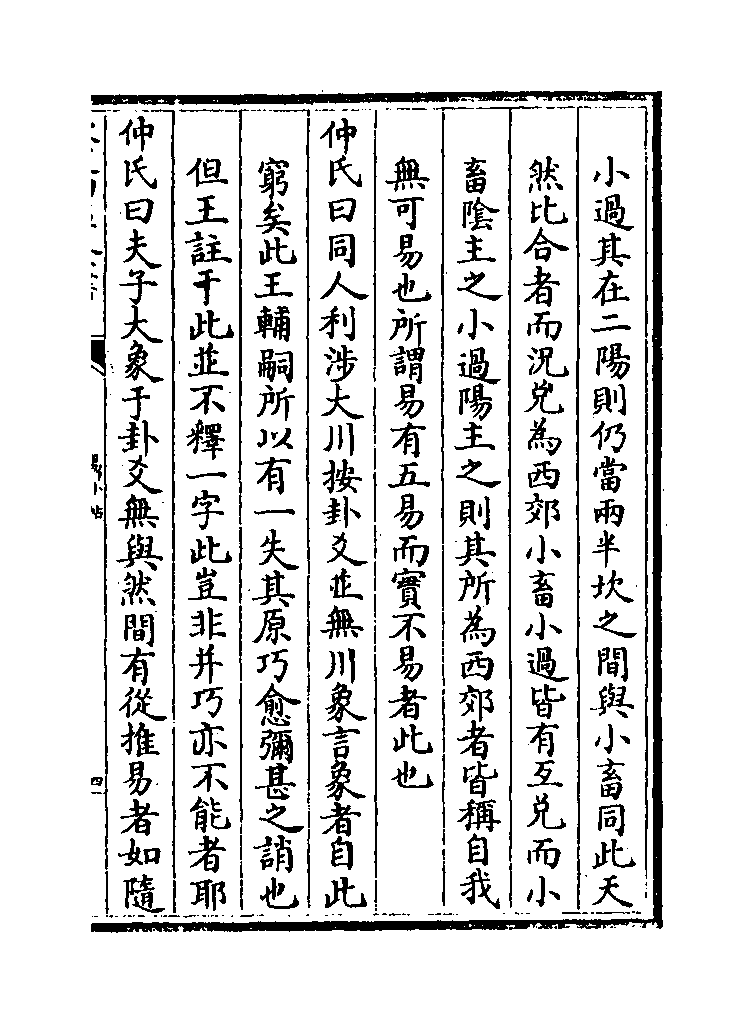 小過其在二陽則仍當兩半坎之間與小畜同此天
然比合者而況兌為西郊小畜小過皆有互兌而小
畜陰主之小過陽主之則其所為西郊者皆稱自我
無可易也所謂易有五易而實不易者此也
仲氏曰同人利涉大川按卦爻並無川象言象者自此
窮矣此王輔嗣所以有一失其原巧愈彌甚之誚也
但王註于此並不釋一字此豈非并巧亦不能者耶
仲氏曰夫子大象于卦爻無與然間有從推易者如隨
易小帖
四